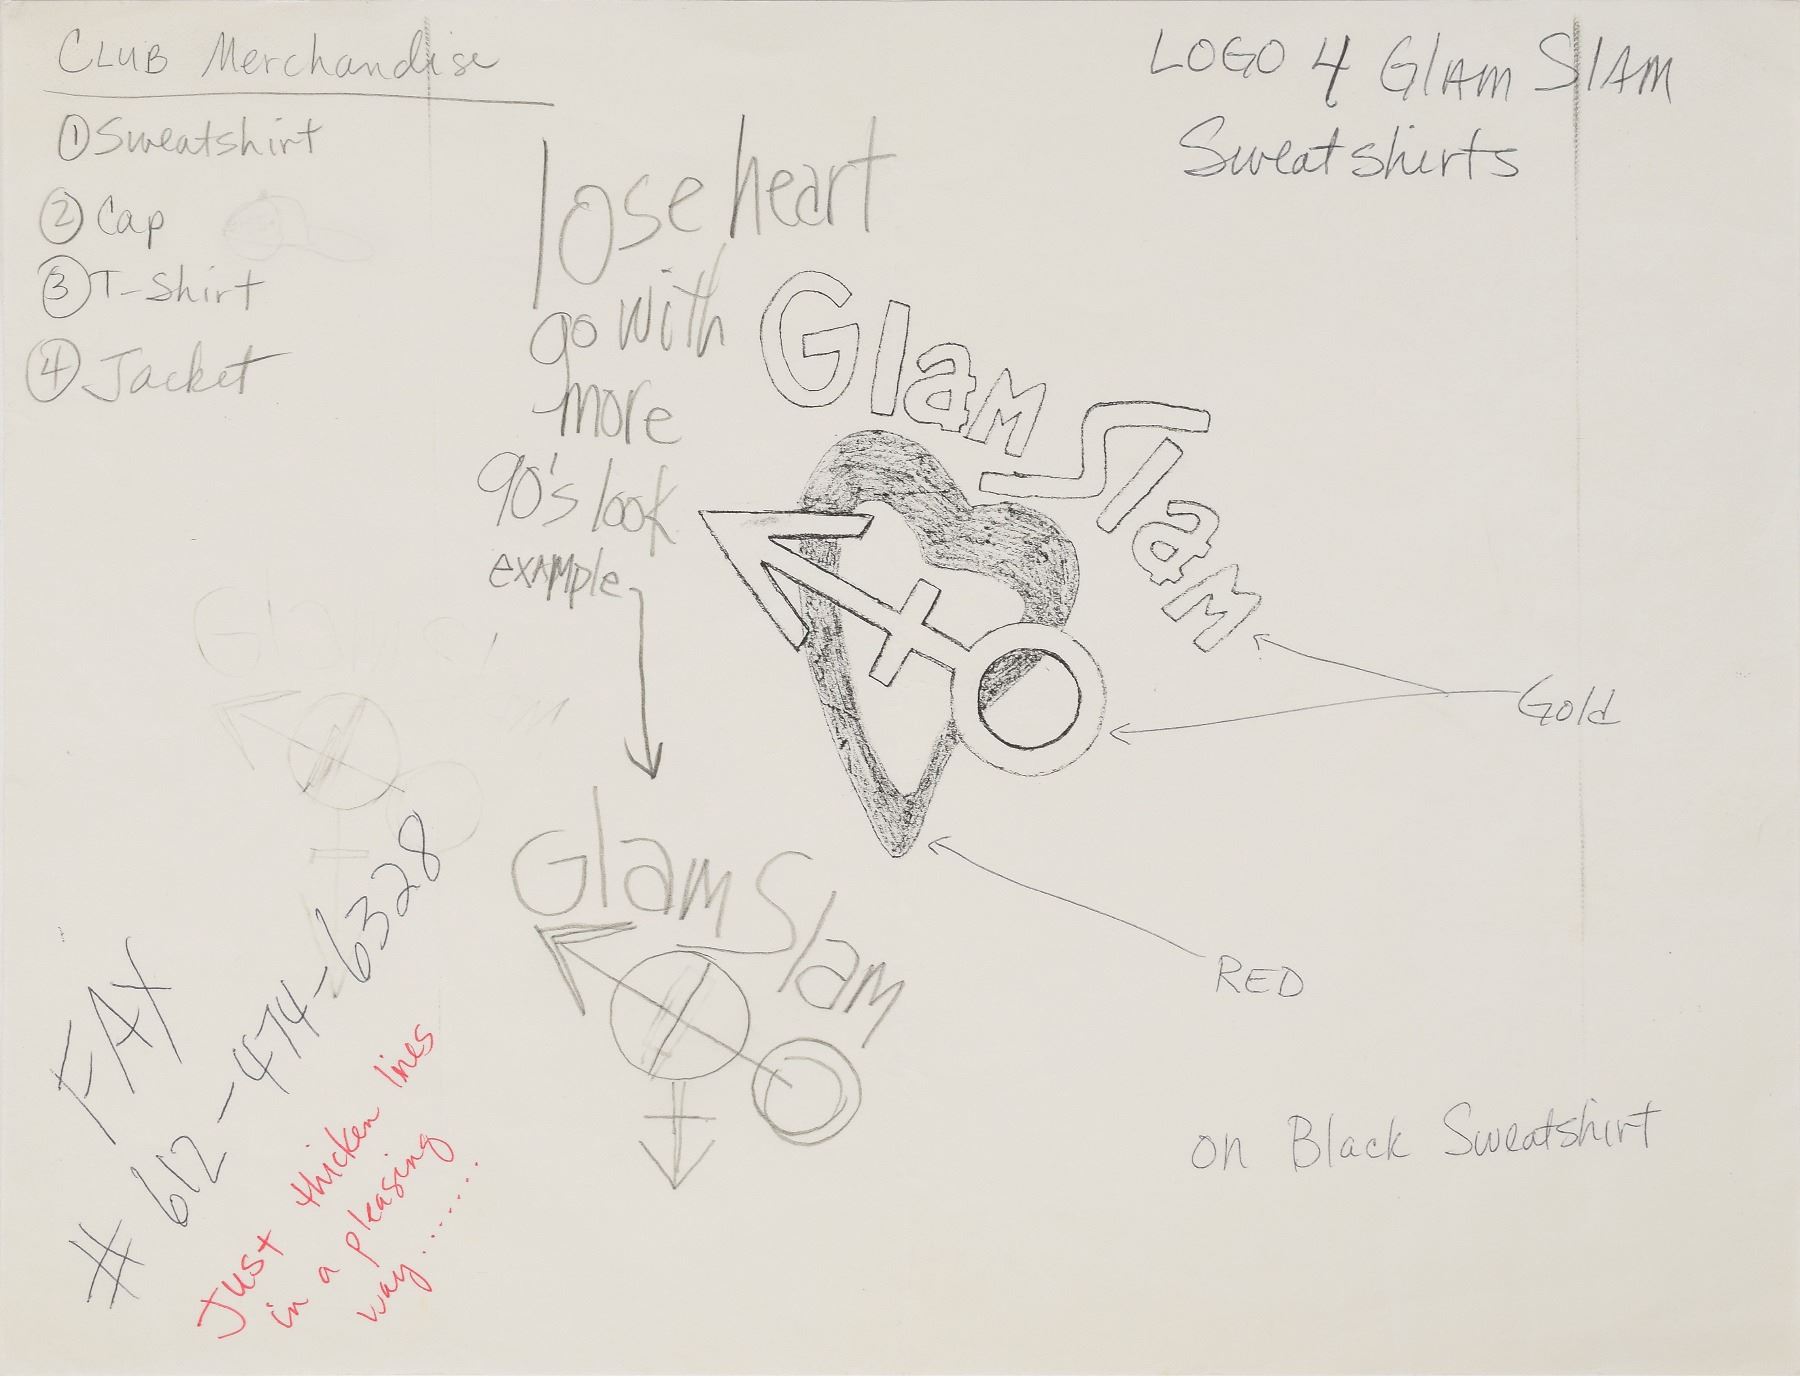 CLUB Merchandise
① Sweatshirt
② Cap
③ T-Shirt
④ Jacket
LOGO 4 GlAM SlAM
Sweatshirts
lose heart
go with
more
90's look
example
Glam Slam
Gold
RED
on Black Sweatshirt
Glam Slam
Glam Sl
am
FAX
# 612-474-6328
Just thicken lines
in a pleasing
way.......